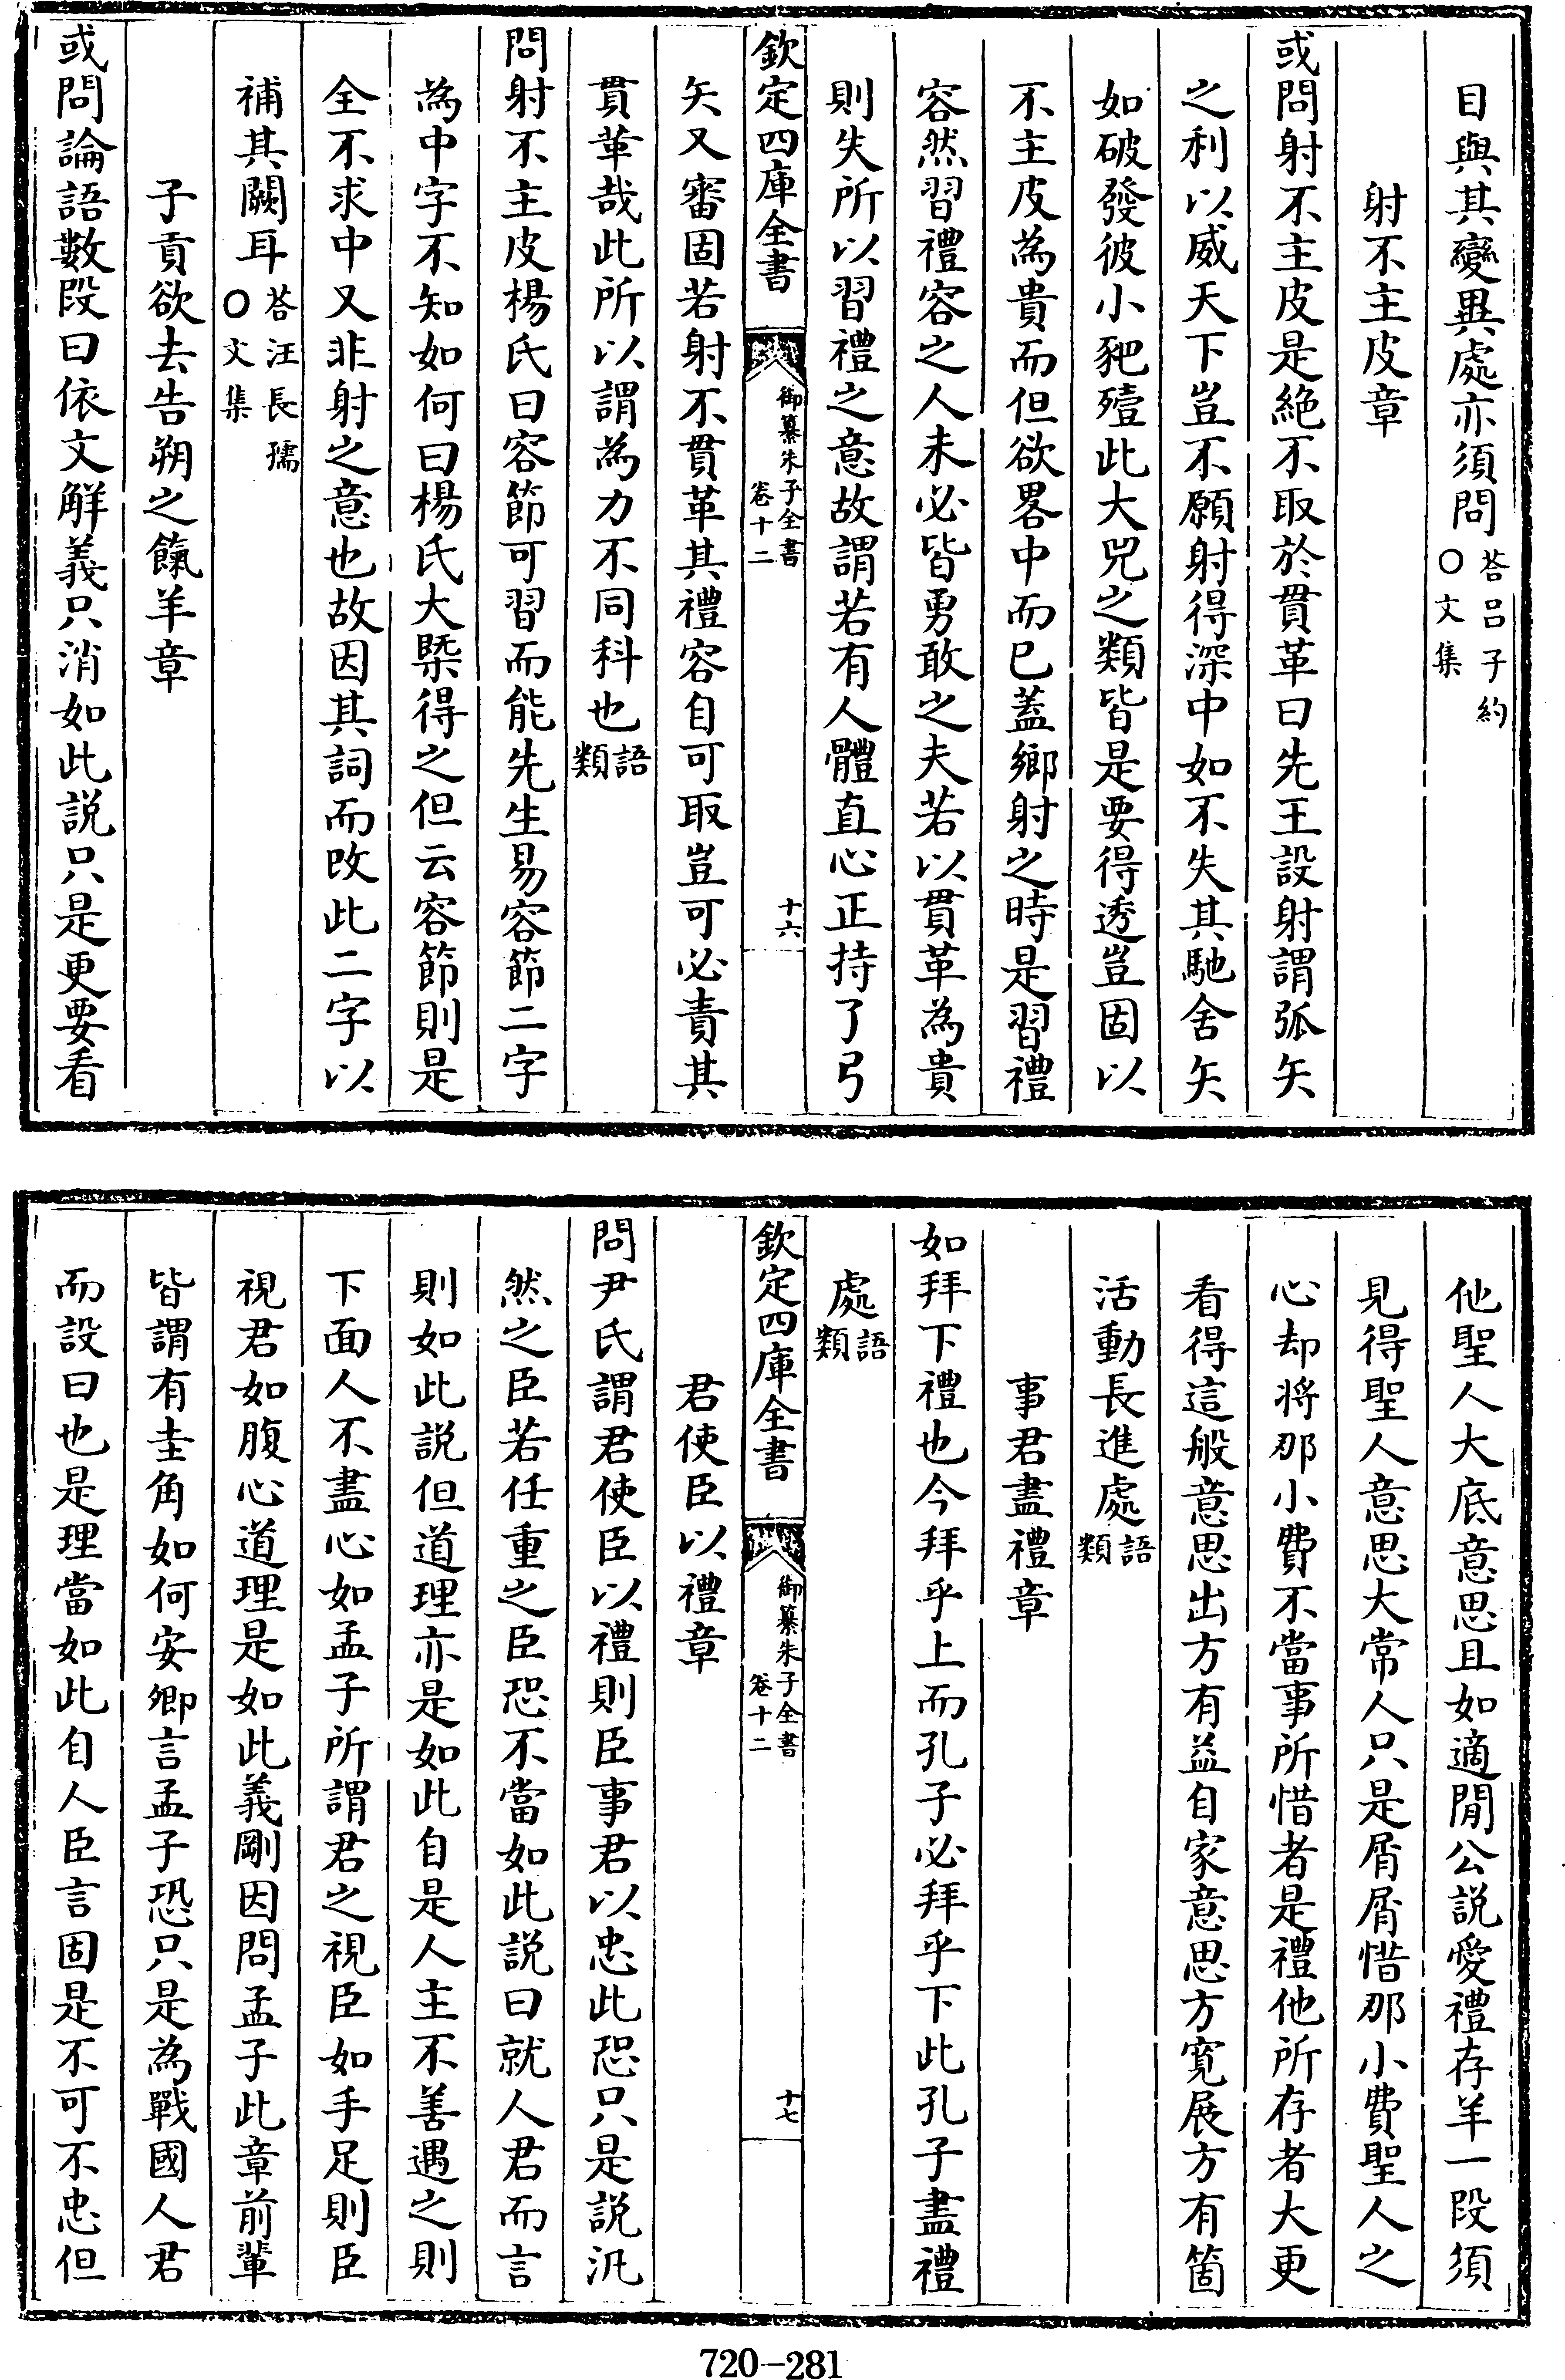 目與其變異處亦須問答呂子約○文集
射不主皮章
或問射不主皮是絶不取於貫革曰先王設射謂弧矢
之利以威天下豈不願射得深中如不失其馳舍矢
如破發彼小豝殪此大兕之類皆是要得透豈固以
不主皮為貴而但欲畧中而已蓋鄉射之時是習禮
容然習禮容之人未必皆勇敢之夫若以貫革為貴
則失所以習禮之意故謂若有人體直心正持了弓
欽定四庫全書 御纂朱子全書 卷十二 十六
矢又審固若射不貫革其禮容自可取豈可必責其
貫革哉此所以謂為力不同科也語類
問射不主皮楊氏曰容節可習而能先生易容節二字
為中字不知如何曰楊氏大槩得之但云容節則是
全不求中又非射之意也故因其詞而改此二字以
補其闕耳答汪長孺○文集
子貢欲去告朔之餼羊章
或問論語數段曰依文解義只消如此説只是更要看
他聖人大底意思且如適閒公説愛禮存羊一段須
見得聖人意思大常人只是屑屑惜那小費聖人之
心却将那小費不當事所惜者是禮他所存者大更
看得這般意思出方有益自家意思方寛展方有箇
活動長進處語類
事君盡禮章
如拜下禮也今拜乎上而孔子必拜乎下此孔子盡禮
處語類
欽定四庫全書 御纂朱子全書 卷十二 十七
君使臣以禮章
問尹氏謂君使臣以禮則臣事君以忠此恐只是説汎
然之臣若任重之臣恐不當如此説曰就人君而言
則如此説但道理亦是如此自是人主不善遇之則
下面人不盡心如孟子所謂君之視臣如手足則臣
視君如腹心道理是如此義剛因問孟子此章前輩
皆謂有圭角如何安卿言孟子恐只是為戰國人君
而設曰也是理當如此自人臣言固是不可不忠但
720-281